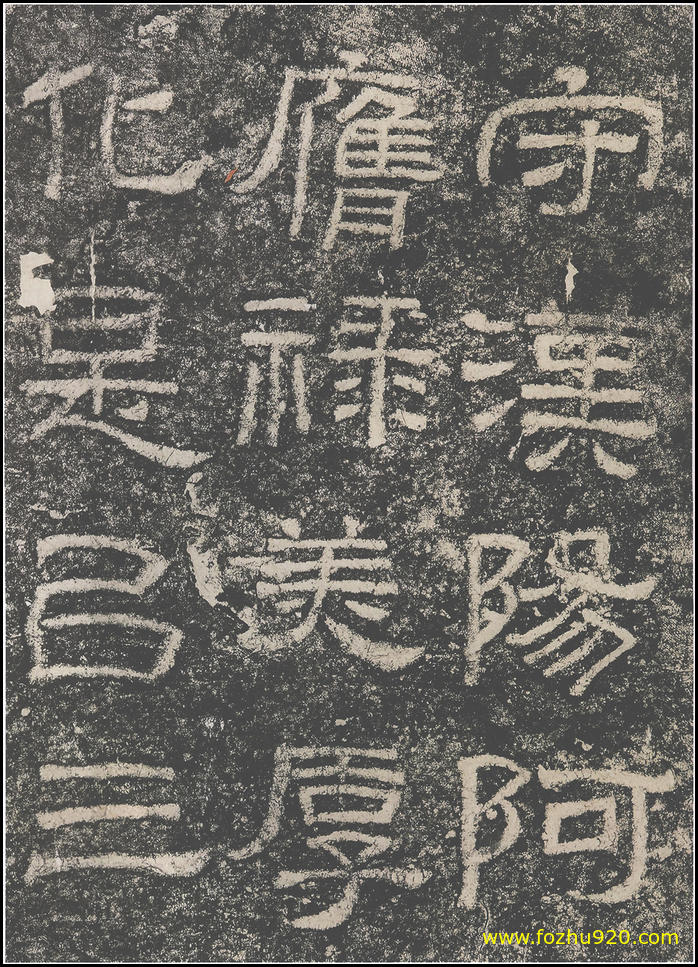 守漢陽阿
膺祿美厚
化是㠯三
www.fozhu920.com